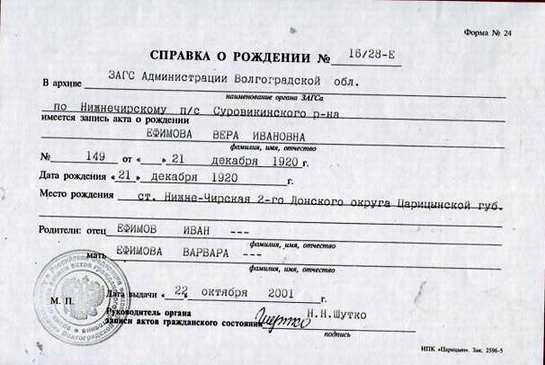 Форма № 24
СПРАВКА О РОЖДЕНИИ № 16/28-Е
В архиве ЗАГС Администрации Волгоградской обл.
наименование органа ЗАГСа
по Нижнечирскому п/с Суровикинского р-на
имеется запись акта о рождении
ЕФИМОВА ВЕРА ИВАНОВНА
фамилия, имя, отчество
№ 149 от «__» 21 декабря 1920 г.
Дата рождения «21» декабря 1920 г.
Место рождения ст. Нижне-Чирская 2-го Донского округа Царицынской губ.
Родители: отец ЕФИМОВ ИВАН ---
фамилия, имя, отчество
мать ЕФИМОВА ВАРВАРА ---
фамилия, имя, отчество
Дата выдачи «22» октября 2001 г.
М. П.
Руководитель органа
записи актов гражданского состояния Н.Н.Шутко
подпись
НПК «Царицын». Зак. 2596-5